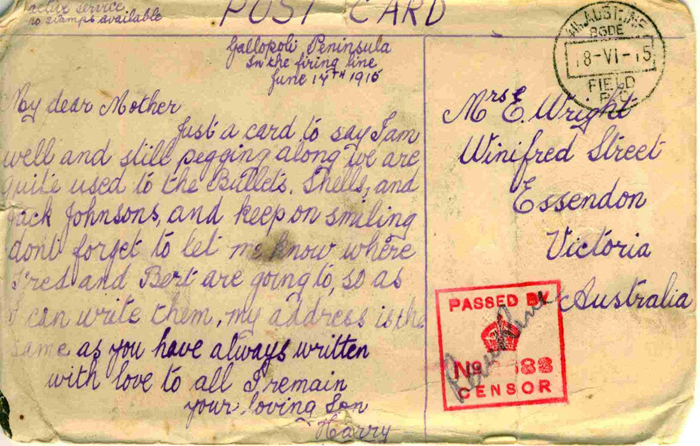 Active Service
no stamps available
POST CARD
Gallopoli Peninsula
In the firing line
June 14TH 1915
My dear Mother
Just a card to say I am
well and still pegging along we are
quite used to the Bullets, Shells, and
Jack Johnsons, and keep on smiling
dont forget to let me know where
Fred and Bert are going to, so as
I can write them, my address is the
same as you have always written
with love to all I remain
your loving Son
Harry
AUST. INF.
BGDE
18-VI-15
FIELD
P.O.
Mrs E. Wright
Winifred Street
Essendon
Victoria
Australia
PASSED BY
No 688
CENSOR